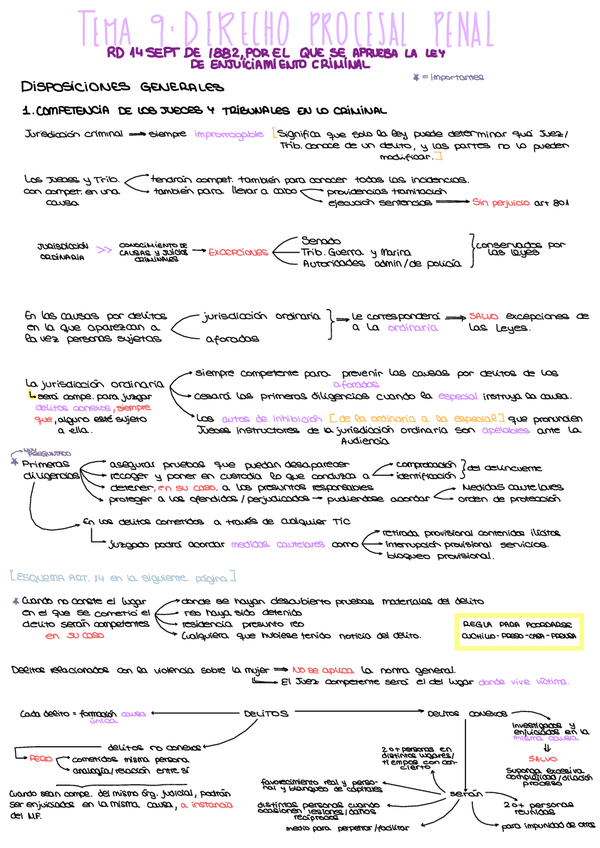 TEMA 9: DERECHO PROCESAL PENAL
RD 14 SEPT DE 1882, POR EL QUE SE APRUEBA LA LEY
DE ENJUICIAMIENTO CRIMINAL
* = importantes
DISPOSICIONES GENERALES
1. COMPETENCIA DE LOS JUECES Y TRIBUNALES EN LO CRIMINAL
Jurisdicción criminal → siempre improrrogable [Significa que solo la ley puede determinar qué Juez/
Trib. conoce de un delito, y las partes no lo pueden
modificar.]
Los Jueces y Trib.
con compet. en una
causa
tendrán compet. también para conocer todas las incidencias.
también para llevar a cabo
providencias tramitación
ejecución sentencias → Sin perjuicio art 801
JURISDICCIÓN
ORDINARIA
>>
CONOCIMIENTO DE
CAUSAS Y JUICIOS
CRIMINALES
→ EXCEPCIONES
Senado
Trib. Guerra y Marina
Autoridades admin/de policía
conservados por
las leyes
En las causas por delitos
en la que aparezcan a
la vez personas sujetas
jurisdicción ordinaria
aforados
Le corresponderá
a la ordinaria
→ SALVO excepciones de
las Leyes.
La jurisdicción ordinaria
será compe. para juzgar
delitos conexos, siempre
que, alguno esté sujeto
a ella.
siempre competente para prevenir las causas por delitos de los
aforados
cesará las primeras diligencias cuando la especial instruya la causa.
Los autos de inhibición [de la ordinaria a la especial] que pronuncien
Jueces instructores de la jurisdicción ordinaria son apelables ante la
Audiencia
MUY
PREGUNTADO
* Primeras
diligencias
asegurar pruebas que puedan desaparecer
recoger y poner en custodia lo que conduzca a
comprobación
identificación
del delincuente
detener, en su caso, a los presuntos responsables
proteger a los ofendidos/perjudicados → pudiéndose acordar
Medidas cautelares
orden de protección
En los delitos cometidos a través de cualquier TIC
juzgado podrá acordar medidas cautelares como
retirada provisional contenidos ilícitos
interrupción provisional servicios.
bloqueo provisional.
[ESQUEMA ART. 14 en la siguiente página]
* Cuando no conste el lugar
en el que se cometió el
delito serán competentes
en su caso
donde se hayan descubierto pruebas materiales del delito
reo haya sido detenido
residencia presunto reo
Cualquiera que hubiese tenido noticia del delito.
REGLA PARA ACORDARSE
CUCHILLO-PRESO-CASA-PRENSA
Delitos relacionados con la violencia sobre la mujer → No se aplica la norma general.
El Juez competente será el del lugar donde vive víctima.
Cada delito = formación causa
única
DELITOS
DELITOS CONEXOS
delitos no conexos
PERO
cometidos misma persona
analogía/relación entre sí
Cuando sean compe. del mismo órg. judicial, podrán
ser enjuiciados en la misma causa, a instancia
del M.F.
investigados y
enjuiciados en la
misma causa
SALVO
Suponga excesiva
complejidad/dilación
proceso
serán
2 o + personas en
distintos lugares/
tiempos con con-
cierto
favorecimiento real y perso-
nal y blanqueo de capitales
distintas personas cuando
ocasionen lesiones/daños
recíprocos
medio para perpetrar/facilitar
2 o + personas
reunidas
para impunidad de otros